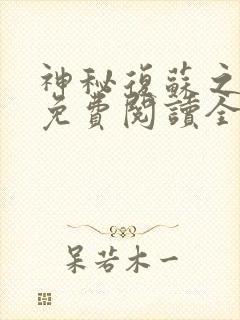 神秘復蘇之
免費閱讀全
呆若木一